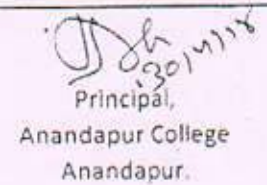 Principal,
Anandapur College
Anandapur.